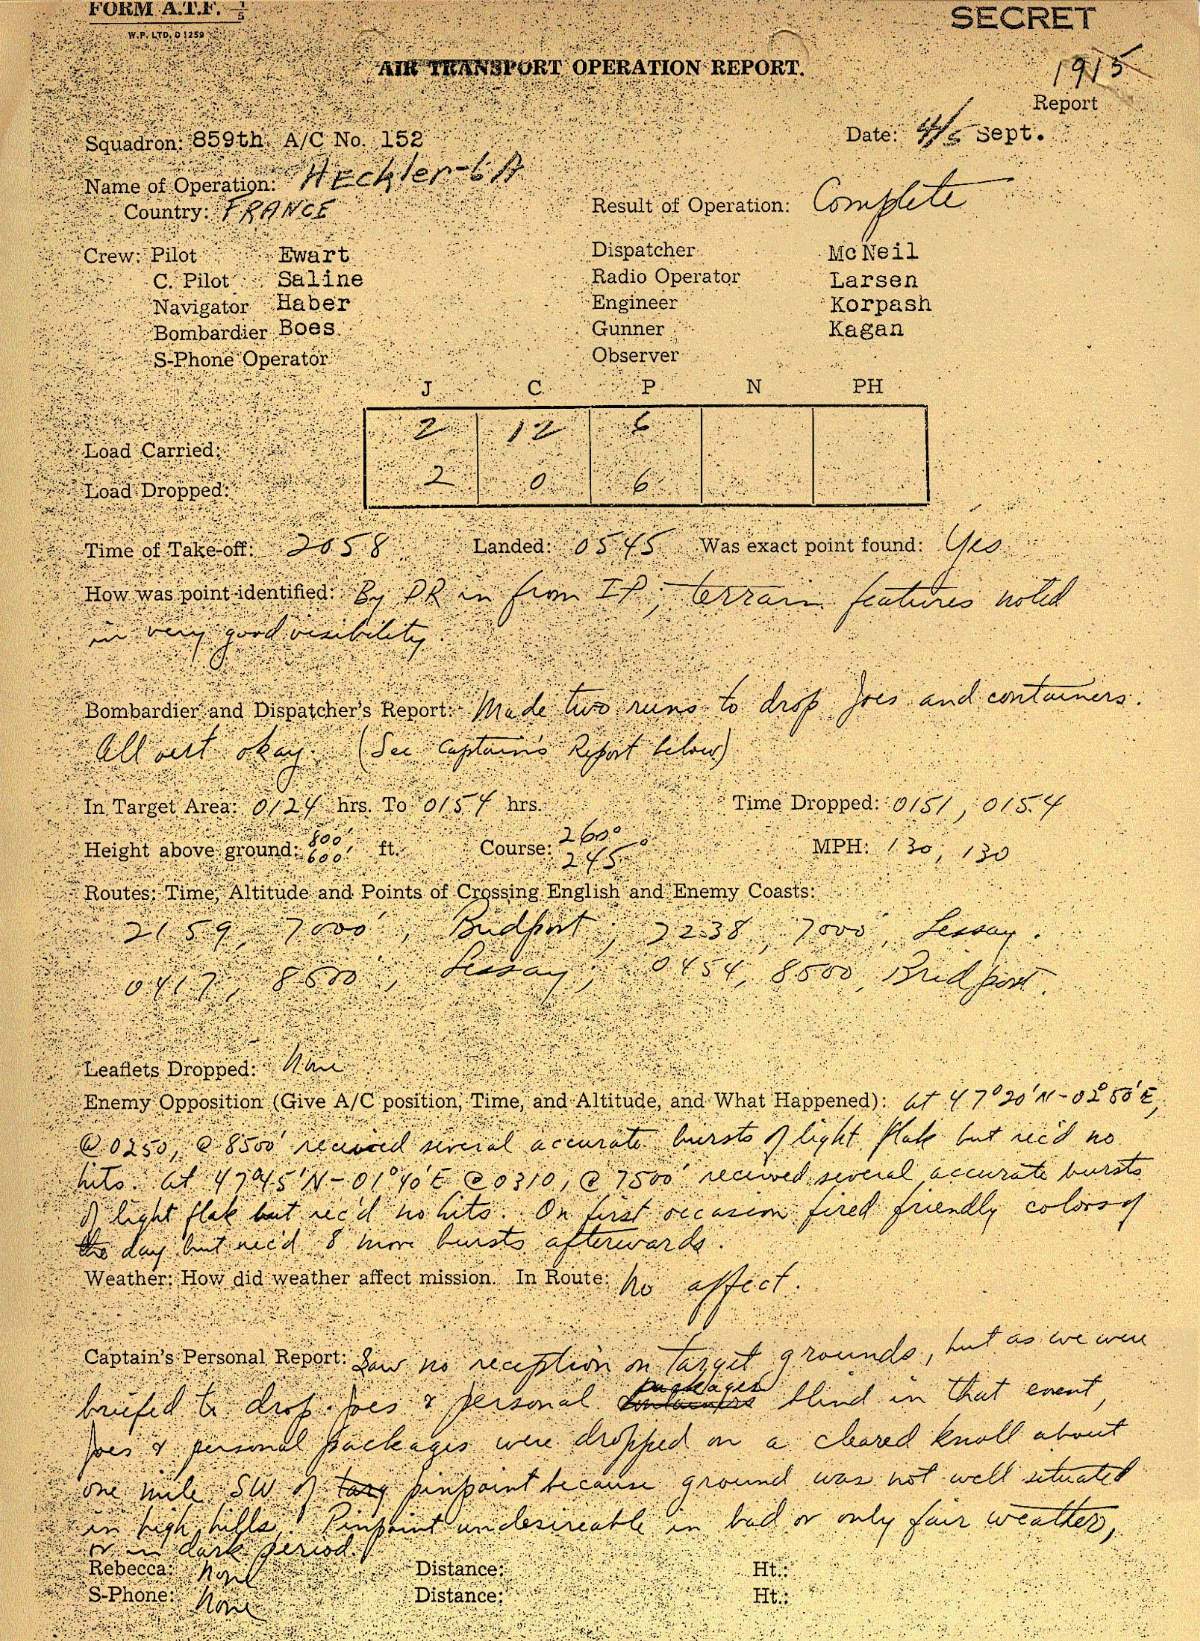 FORM A.T.F. 1/5
W.P. LTD. D1259
SECRET
AIR TRANSPORT OPERATION REPORT.
1915
Report
Squadron: 859th A/C No. 152
Date: 4/5 Sept.
Name of Operation: HEckler-6A
Country: FRANCE
Result of Operation: Complete
Crew: Pilot Ewart Dispatcher McNeil
C. Pilot Saline Radio Operator Larsen
Navigator Haber Engineer Korpash
Bombardier Boes Gunner Kagan
S-Phone Operator Observer
J C P N PH
Load Carried: 2 12 6
Load Dropped: 2 0 6
Time of Take-off: 2058 Landed: 0545 Was exact point found: Yes
How was point identified: By DR in from IP; terrain features noted
in very good visibility.
Bombardier and Dispatcher's Report: Made two runs to drop Joes and containers.
All went okay. (See Captain's Report below)
In Target Area: 0124 hrs. To 0154 hrs. Time Dropped: 0151, 0154
Height above ground: 800' 600' ft. Course: 260° 245° MPH: 130, 130
Routes: Time, Altitude and Points of Crossing English and Enemy Coasts:
2159, 7000', Bridport; 2238, 7000', Lessay.
0417, 8500', Lessay; 0454, 8500, Bridport.
Leaflets Dropped: None
Enemy Opposition (Give A/C position, Time, and Altitude, and What Happened): At 47°20'N-02°50'E,
@ 0250, @ 8500' received several accurate bursts of light flak but rec'd no
hits. At 47°45'N-01°40'E @ 0310, @ 7500' received several accurate bursts
of light flak but rec'd no hits. On first occasion fired friendly colors of
the day but rec'd 8 more bursts afterwards.
Weather: How did weather affect mission. In Route: No affect.
Captain's Personal Report: Saw no reception on target grounds, but as we were
briefed to drop Joes & personal containers packages blind in that event,
Joes & personal packages were dropped on a cleared knoll about
one mile SW of targ pinpoint because ground was not well situated
in high hills. Pinpoint undesireable in bad or only fair weather,
or in dark period.
Rebecca: None Distance: Ht.:
S-Phone: None Distance: Ht.: